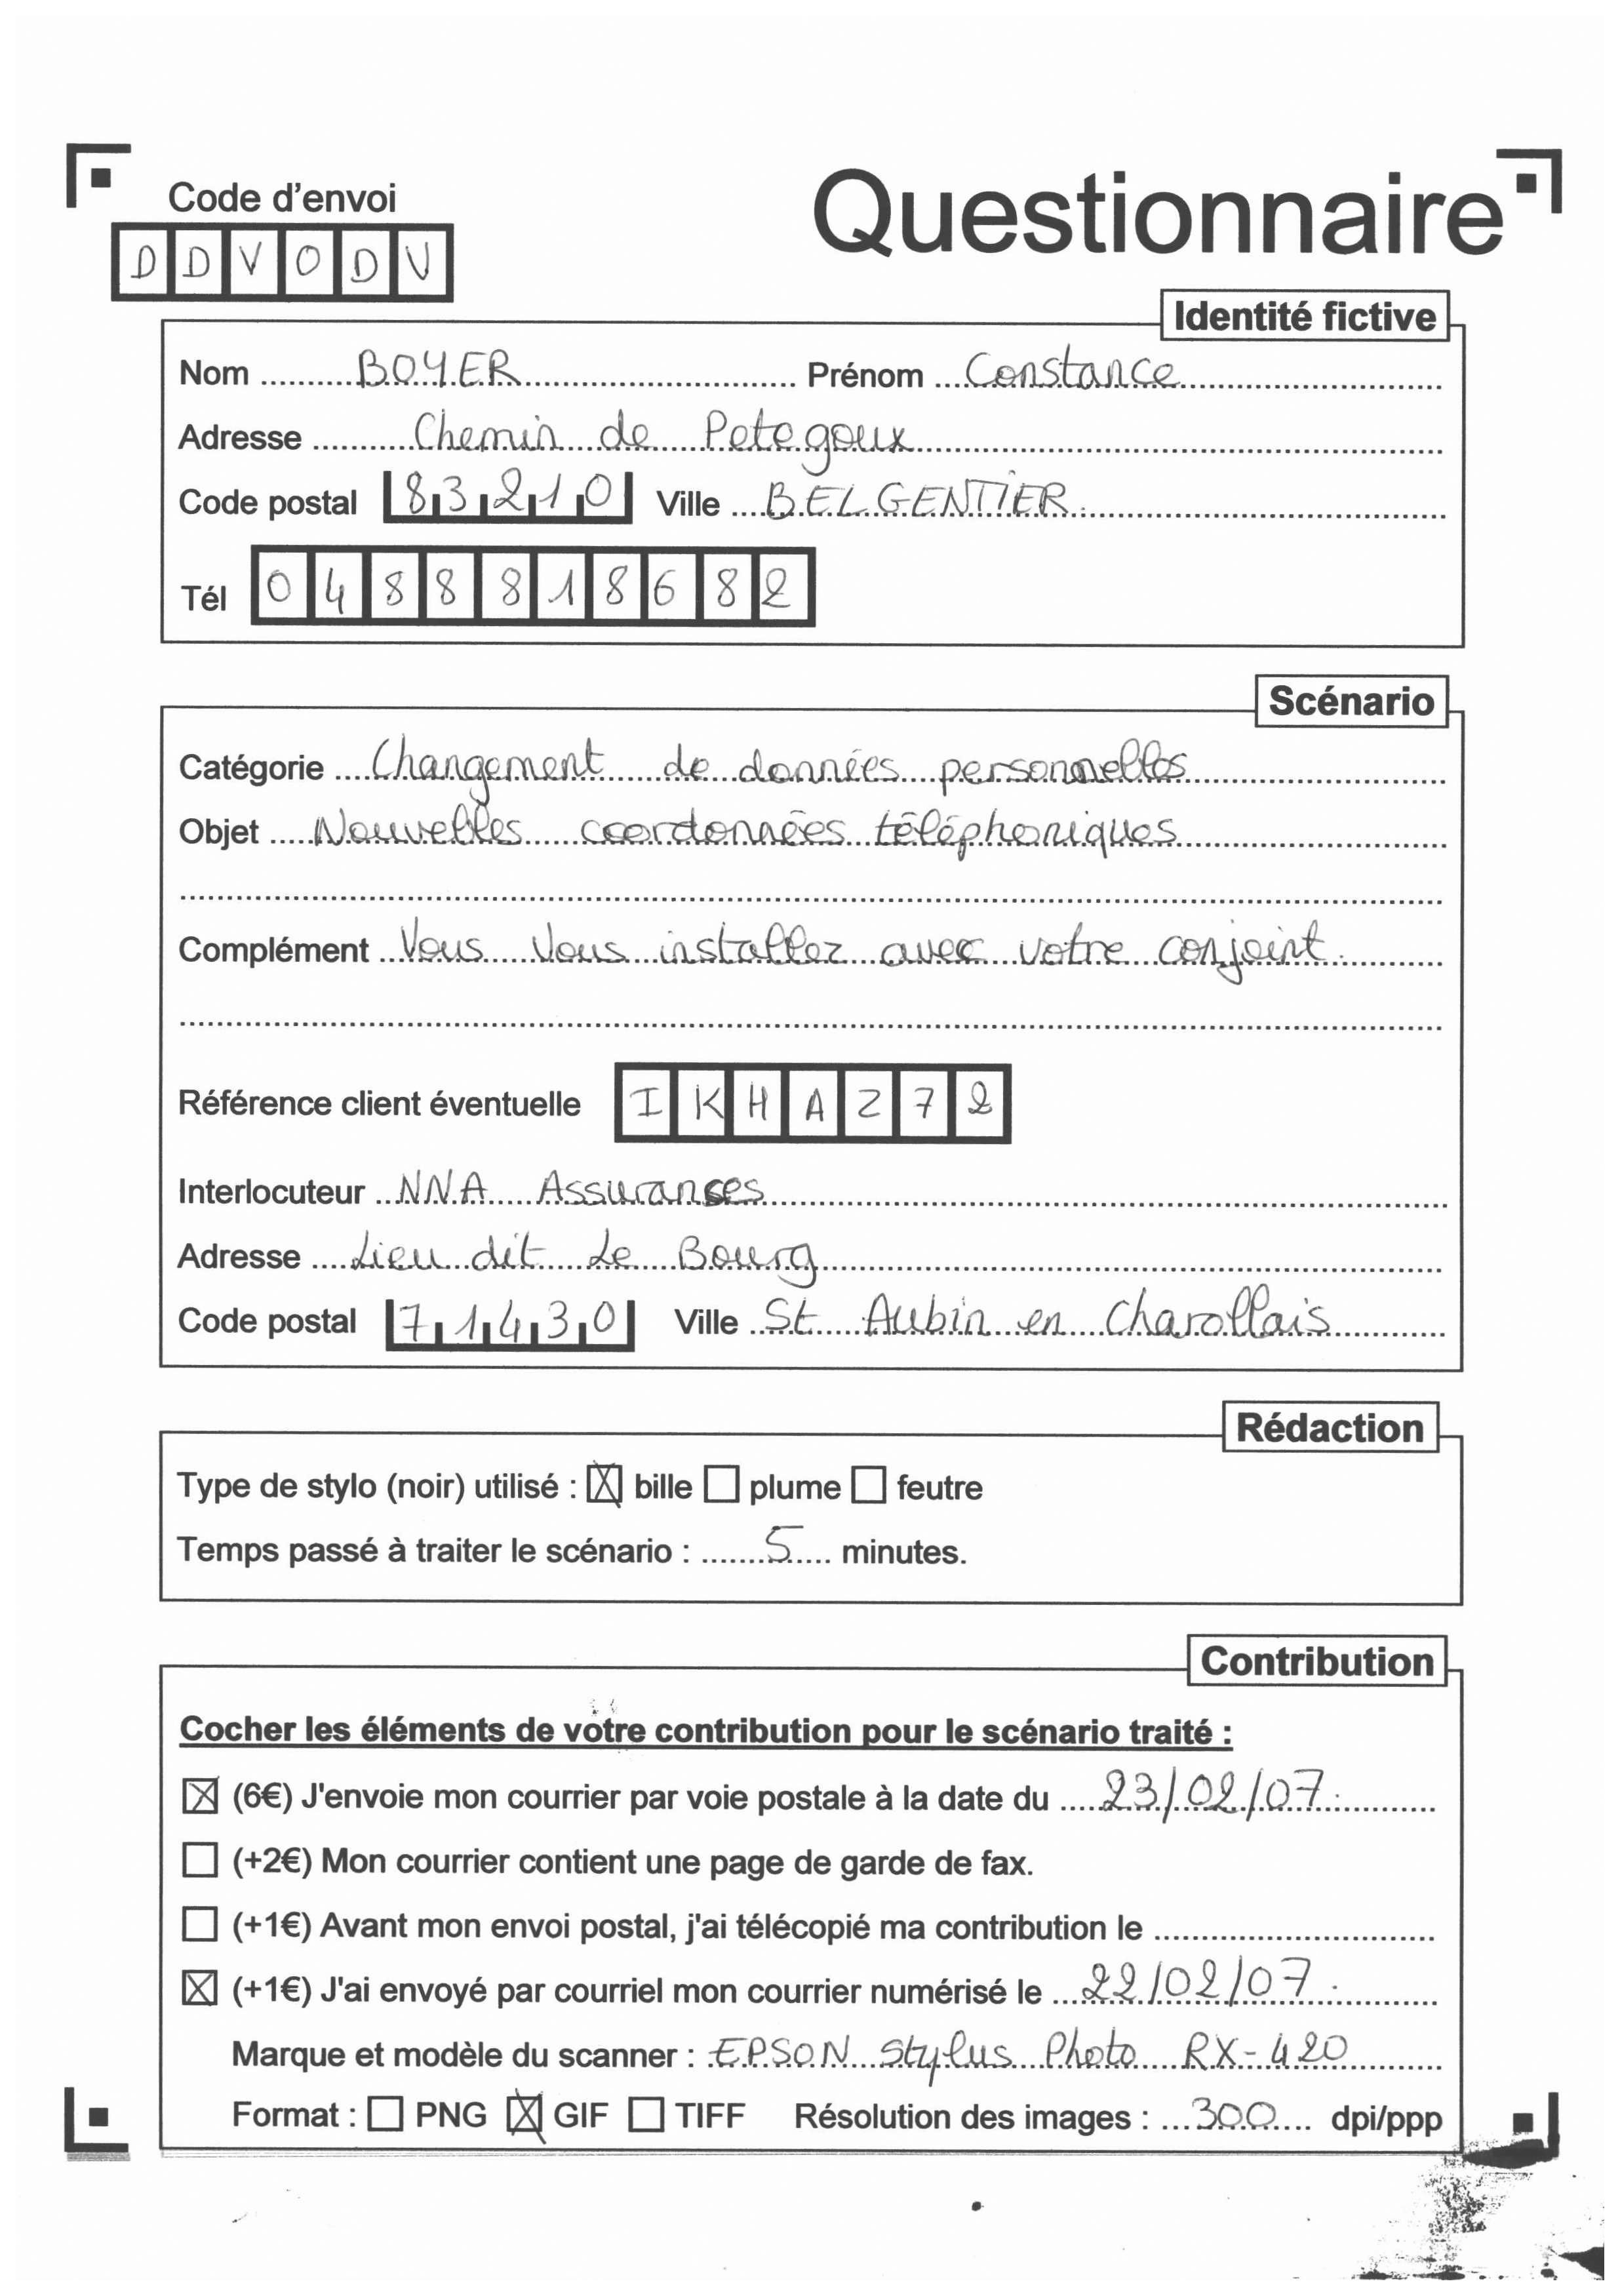 Code d'envoi
Questionnaire
D D V O D V
Identité fictive
Nom BOYER Prénom Constance
Adresse Chemin de Petegoux
Code postal 83210 Ville BELGENTIER.
Tél 0488818682
Scénario
Catégorie Changement de données personnelles
Objet Nouvelles coordonnées téléphoniques
Complément Vous Vous installez avec votre conjoint.
Référence client éventuelle I K H A Z 7 2
Interlocuteur NNA Assurances
Adresse Lieu dit Le Bourg
Code postal 71430 Ville St Aubin en Charollais
Rédaction
Type de stylo (noir) utilisé : ☒ bille ☐ plume ☐ feutre
Temps passé à traiter le scénario : 5 minutes.
Contribution
Cocher les éléments de votre contribution pour le scénario traité :
☒ (6€) J'envoie mon courrier par voie postale à la date du 23/02/07.
☐ (+2€) Mon courrier contient une page de garde de fax.
☐ (+1€) Avant mon envoi postal, j'ai télécopié ma contribution le
☒ (+1€) J'ai envoyé par courriel mon courrier numérisé le 22/02/07.
Marque et modèle du scanner : EPSON Stylus Photo RX-420
Format : ☐ PNG ☒ GIF ☐ TIFF Résolution des images : 300 dpi/ppp